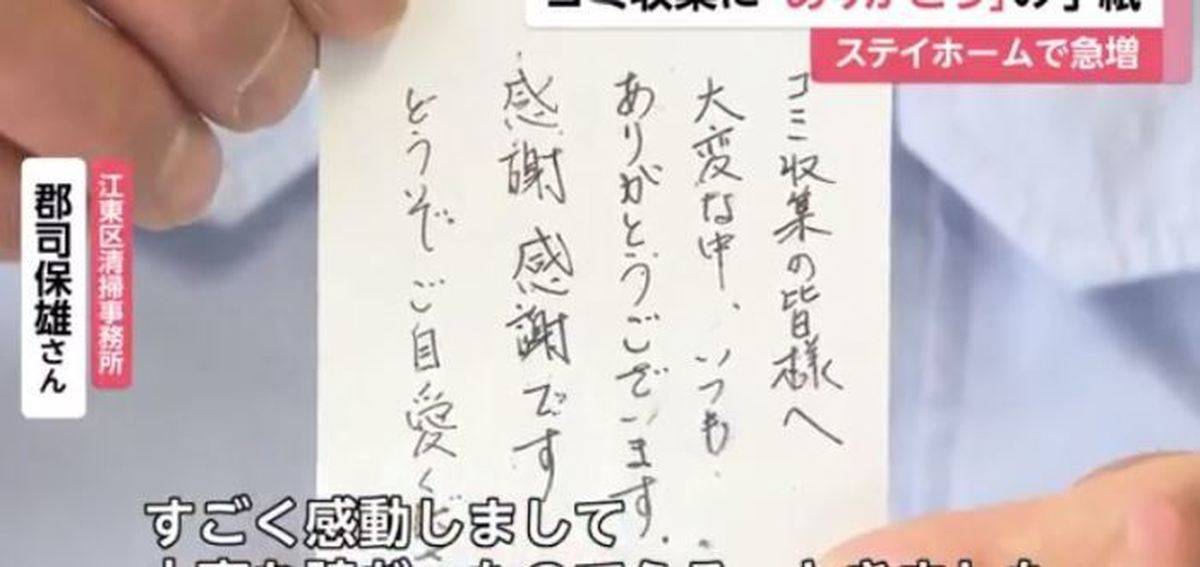 ゴミ収集に「ありがとう」の手紙
ステイホームで急増
江東区清掃事務所
郡司保雄さん
ゴミ収集の皆様へ
大変な中、いつも
ありがとうございます。
感謝 感謝です
どうぞご自愛く
すごく感動しまして